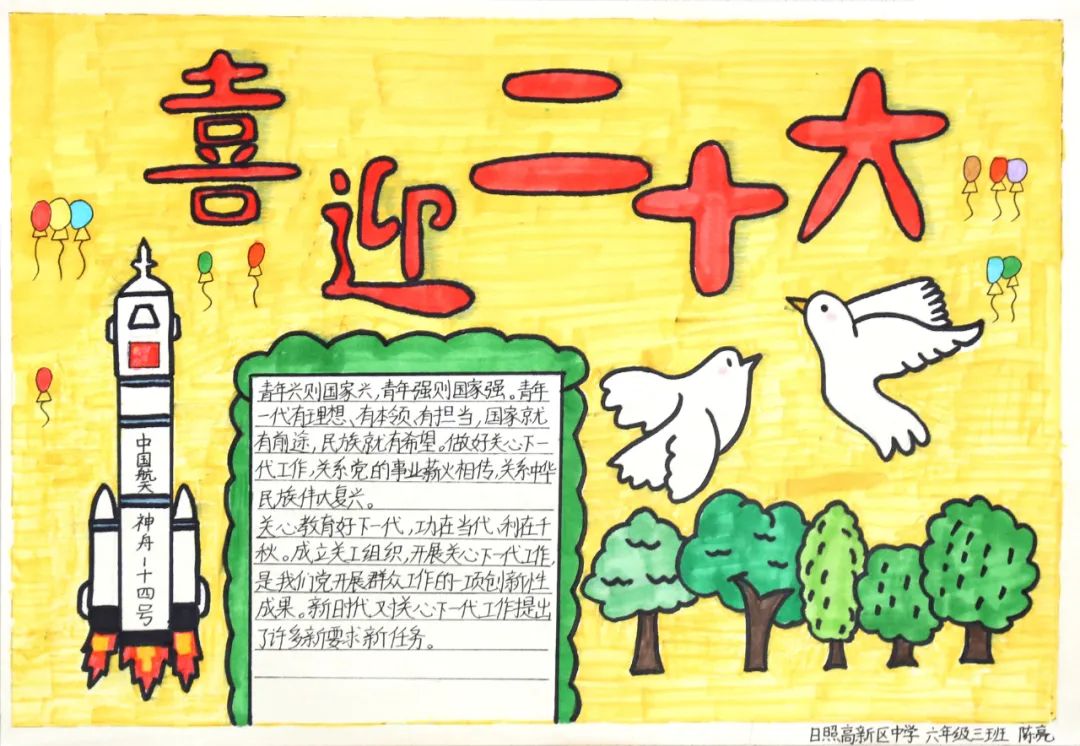 喜迎二十大
中国航天
神舟-十四号
青年兴则国家兴，青年强则国家强。青年
一代有理想、有本领、有担当，国家就
有前途，民族就有希望。做好关心下一
代工作，关系党的事业薪火相传，关系中华
民族伟大复兴。
关心教育好下一代，功在当代、利在千
秋。成立关工组织，开展关心下一代工作，
是我们党开展群众工作的一项创新性
成果。新时代又对关心下一代工作提出
了许多新要求新任务。
日照高新区中学 六年级三班 陈亮